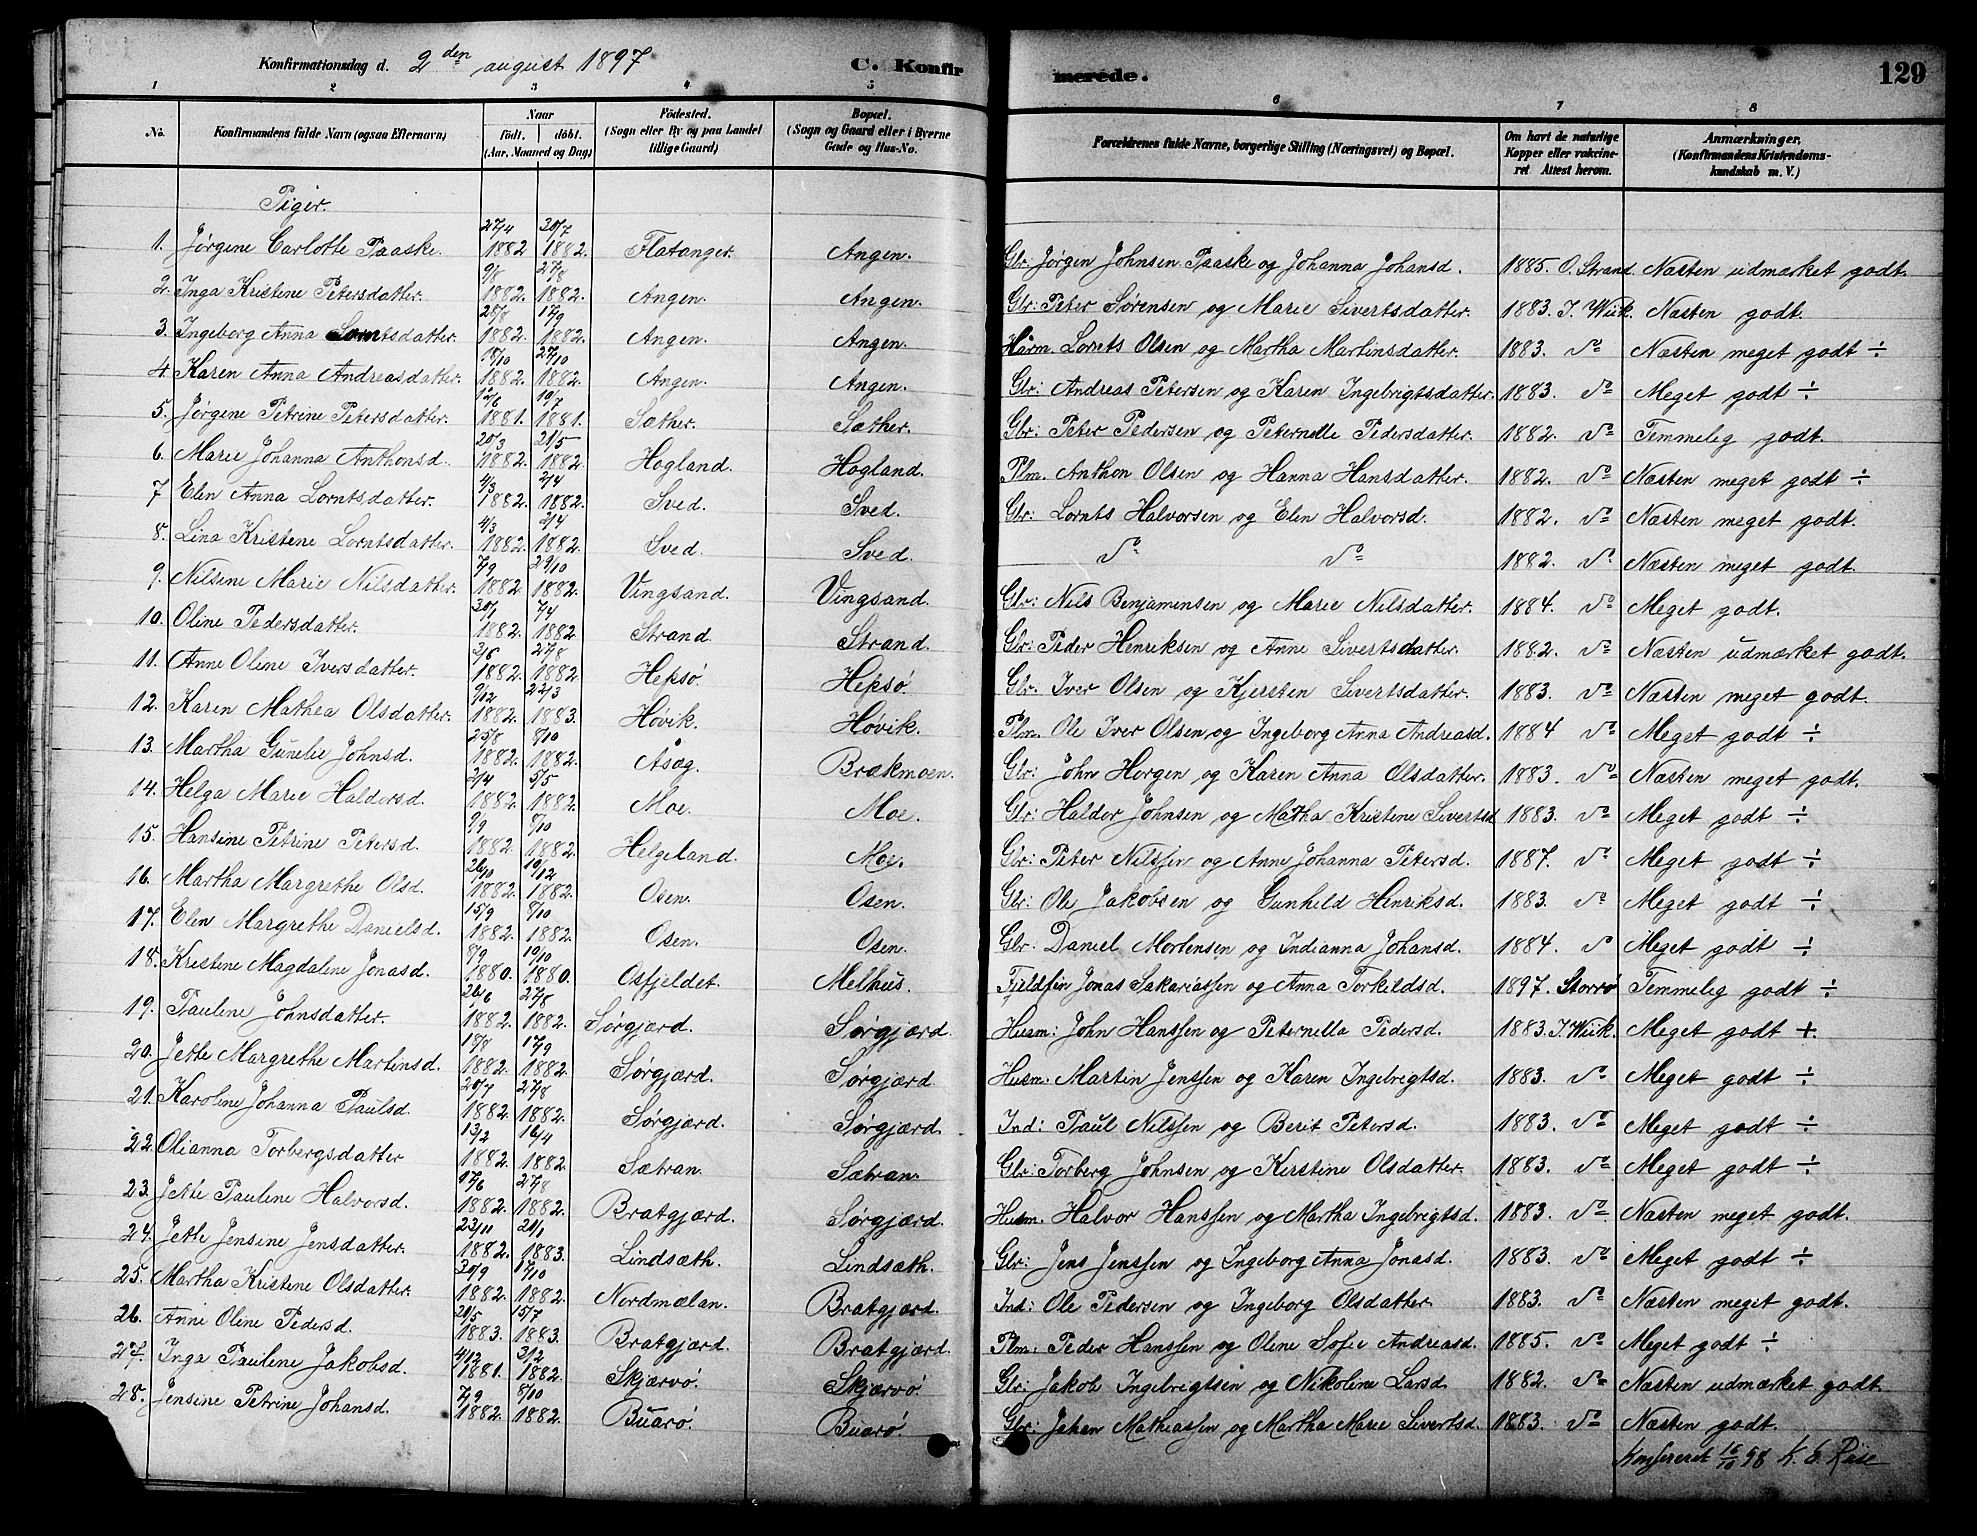 Konfirmationsdag d. 2den august 1897 C. Konfirmerede. 129
1 2 3 4 5 6 7 8
No. Konfirmandens fulde Navn (ogsaa Efternavn) Naar födt. döbt. (Aar, Maaned og Dag) Födested. (Sogn eller By og paa Landet tillige Gaard) Bopæl. (Sogn og Gaard eller i Byerne Gade og Hus-No. Forældrenes fulde Navne, borgerlige Stilling (Næringsvei) og Bopæl. Om havt de naturlige Kopper eller vaccineret Attest herom. Anmærkninger, (Konfirmandens Kristendomskundskab m. V.)
Piger.
1. Jørgine Carlotte Paaske. 27/4 1882 30/7 1882. Flatanger. Angen. Gbr. Jørgen Johnsen Paaske og Johanna Johansd. 1885. O. Strand Næsten udmærket godt.
2. Inga Kristine Petersdatter. 9/8 1882. 27/8 1882. Angen. Angen. Gbr: Peter Sørensen og Marie Sivertsdatter. 1883. J. Wiik. Næsten godt.
3. Ingeborg Anna Lorntsdatter. 25/8 1882. 17/9 1882. Angen. Angen. Husm. Lornts Olsen og Martha Martinsdatter. 1883. do Næsten meget godt ÷
4. Karen Anna Andreasdatter. 18/10 1882. 27/10 1882. Angen. Angen. Gbr: Andreas Petersen og Karen Ingebrigtsdatter. 1883. do Meget godt ÷
5. Jørgine Petrine Petersdatter. 12/6 1881. 10/7 1881. Sæther. Sæther. Gbr: Peter Pedersen og Peternelle Pedersdatter. 1882. do Temmelig godt.
6. Marie Johanna Anthonsd. 20/3 1882. 21/5 1882. Hogland. Hogland. Plm. Anthon Olsen og Hanna Hansdatter. 1882. do Næsten meget godt ÷
7 Elen Anna Lorntsdatter. 4/3 1882. 2/4 1882. Sved. Sved. Gbr: Lornts Halvorsen og Elen Halvorsd. 1882. do Næsten meget godt.
8. Lina Kristine Lorntsdatter. 4/3 1882. 2/4 1882. Sved. Sved. do do 1882. do Næsten meget godt.
9. Nilsine Marie Nilsdatter. 7/9 1882. 29/10 1882. Vingsand. Vingsand. Gbr: Nils Benjamensen og Marie Nilsdatter. 1884. do Meget godt.
10. Oline Pedersdatter. 30/1 1882. 7/4 1882 Strand. Strand. Gbr: Peder Henriksen og Anne Sivertsdatter. 1882. do Næsten udmærket godt.
11. Anne Oline Iversdatter. 3/6 1882. 27/8 1882 Hepsø. Hepsø. Gbr: Iver Olsen og Kjersten Sivertsdatter. 1883. do Næsten meget godt.
12. Karen Mathea Olsdatter. 9/12 1882. 22/3 1883. Høvik. Høvik. Plm. Ole Iver Olsen og Ingeborg Anna Andreasd. 1884 do Meget godt ÷
13. Martha Gunelie Johnsd. 25/8 1882. 8/10 1882. Aasæg. Brækmoen. Gbr: John Horgen og Karen Anna Olsdatter. 1883. do Næsten meget godt.
14. Helga Marie Haldersd. 2/4 1882. 5/5 1882. Moe. Moe. Gbr: Haldor Johnsen og Martha Kristene Sivertsd 1883. do Meget godt ÷
15. Hansine Petrine Petersd. 9/9 1882. 8/10 1882. Helgeland. Moe. Gbr: Peter Nilssen og Ane Johanna Petersd. 1887. do Meget godt ÷
16. Martha Margrethe Olsd. 26/10 1882. 10/12 1882. Osen. Osen. Gbr: Ole Jakobsen og Gunhild Henriksd. 1883. do Meget godt ÷
17. Elen Margrethe Danielsd. 15/9 1882. 8/10 1882. Osen. Osen. Gbr: Daniel Mortensen og Indianna Johansd. 1884. do Meget godt ÷
18. Kristine Magdalene Jonasd. 8/9 1880. 10/10 1880. Osfjeldet. Melhus. Fjeldfin Jonas Sakariassen og Anna Torkildsd. 1897. Storrø Temmelig godt ÷
19. Pauline Johnsdatter. 26/6 1882. 27/8 1882. Sørgjærd. Sørgjærd Husm: John Hanssen og Peternella Pedersd. 1883. J. Wiik. Meget godt +.
20. Jette Margrethe Martinsd. 18/8 1882. 17/9 1882. Sørgjærd. Sørgjærd Husm: Martin Jenssen og Karen Ingebrigtsd. 1883. do Meget godt ÷
21. Karoline Johanna Paulsd. 20/7 1882. 27/8 1882. Sørgjærd. Sørgjærd. Ind: Paul Nilssen og Berit Petersd. 1883. do Meget godt ÷
22. Olianna Torbergsdatter 13/2 1882. 16/4 1882. Sætran. Sætran. Gbr: Torberg Johnsen og Kerstine Olsdatter. 1883. do Meget godt ÷
23. Jette Pauline Halvorsd. 17/6 1882. 27/8 1882. Bratgjærd. Sørgjærd. Husm. Halvor Hanssen og Martha Ingebrigtsd. 1883. do Næsten meget godt.
24. Jette Jensine Jensdatter. 23/11 1882. 21/1 1883. Lindsæth. Lindsæth. Gbr: Jens Jenssen og Ingeborg Anna Jonasd. 1883. do Meget godt ÷
25. Martha Kristine Olsdatter. 30/9 1882. 17/10 1882. Nordmælan. Bratgjærd. Ind: Ole Pedersen og Ingeborg Olsdatter. 1883. do Næsten meget godt.
26. Anne Oline Pedersd. 20/5 1883. 15/7 1883. Bratgjærd. Bratgjærd. Plm: Peder Hanssen og Oline Sofie Andreasd. 1885. do Meget godt ÷
27. Inga Pauline Jakobsd. 4/12 1881. 3/2 1882. Skjærvø. Skjærvø. Gbr: Jakob Ingebrigtsen og Nikoline Larsd. 1882. do Næsten udmærket godt.
28. Jensine Petrine Johansd. 7/9 1882. 8/10 1882. Buarø. Buarø. Gbr: Johan Mathiassen og Martha Marie Sivertsd. 1883. do Næsten godt.
Konfereret 16/10 98 K. E. Riise